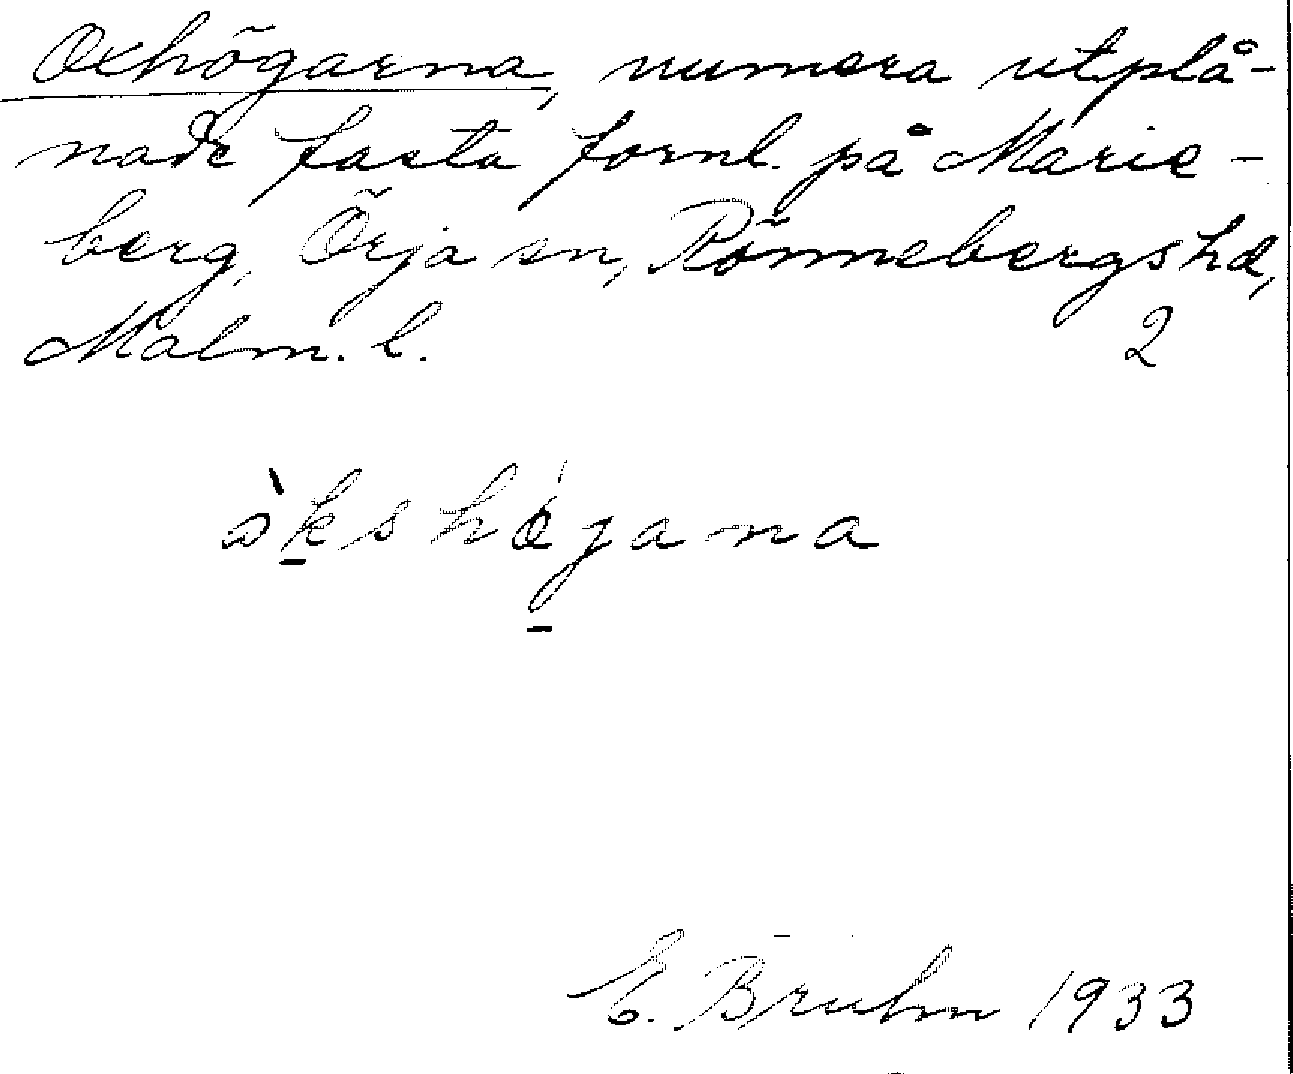 Oxhögarna, numera utplå-
nade fasta fornl. på Marie-
berg, Örja sn, Rönnebergs hd,
Malm. l. 2
òkshǿjana
E. Bruhn 1933